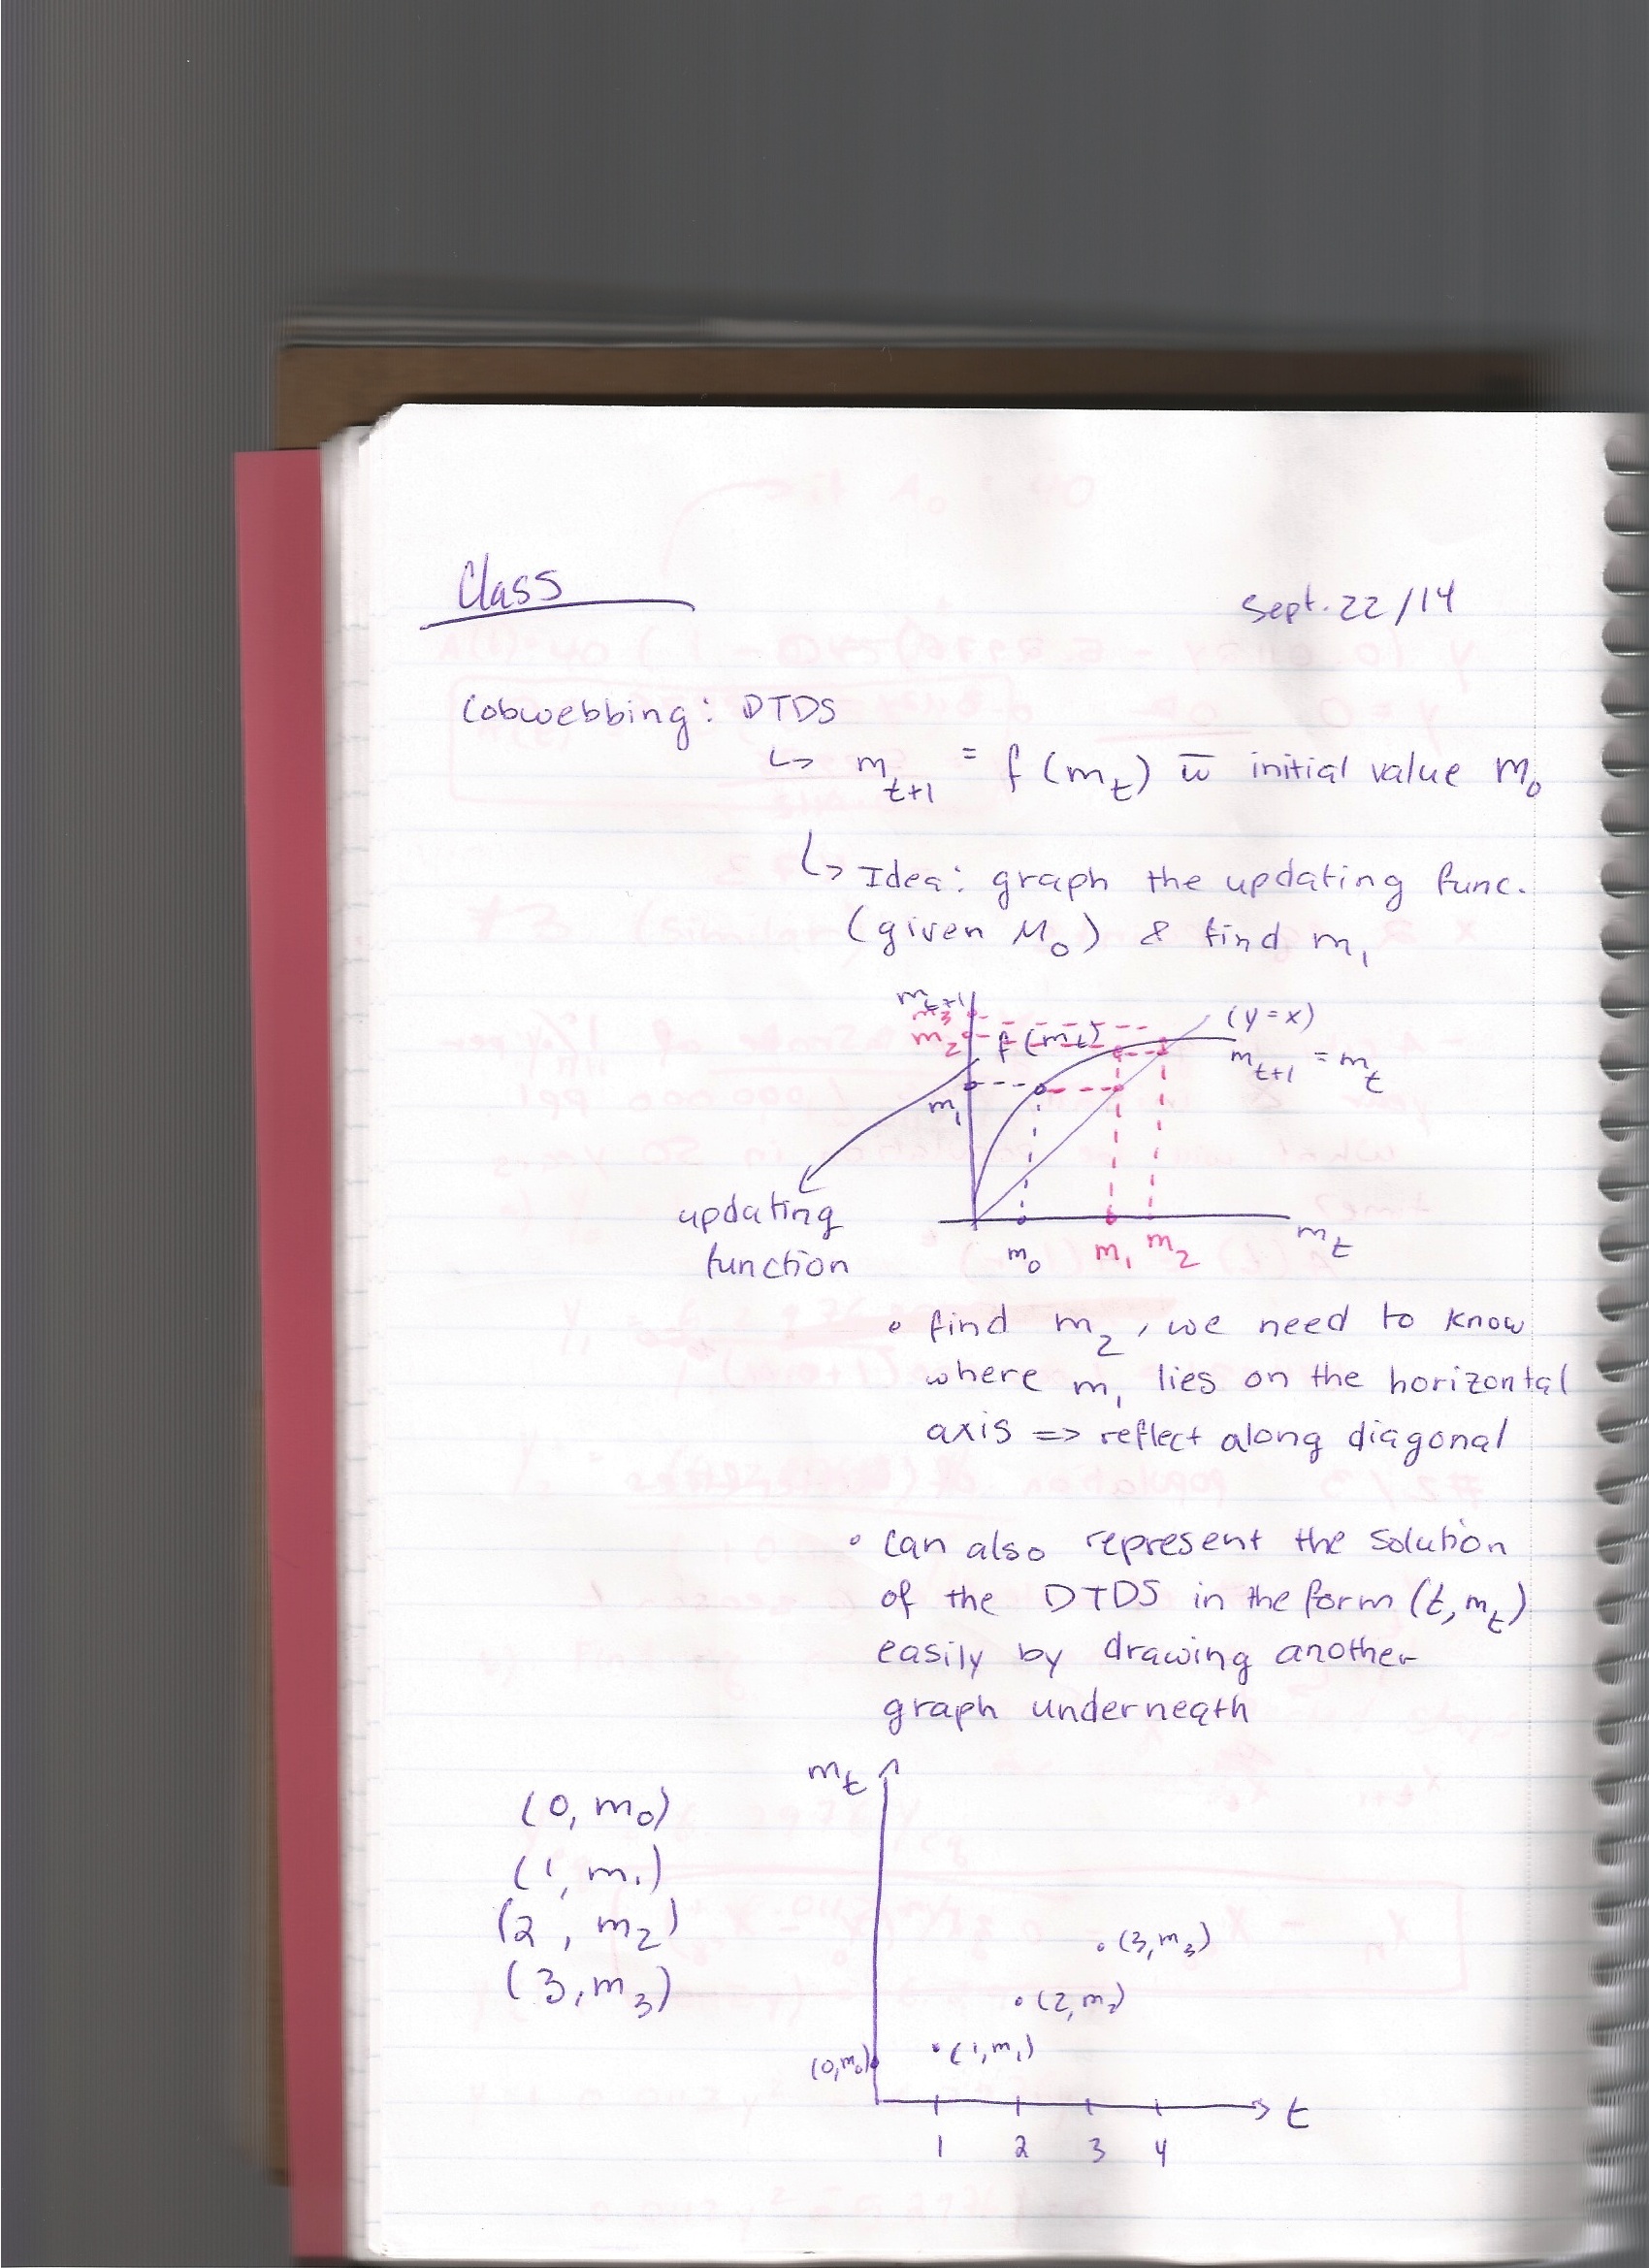 Class
Sept. 22/14
Cobwebbing: DTDS
↳ m_{t+1} = f(m_t) w̅ initial value M_0
↳ Idea: graph the updating func.
(given M_0) & find m_1
m_{t+1}
m_3
m_2
f(m_t)
(y=x)
m_{t+1} = m_t
m_1
updating
function
m_0 m_1 m_2 m_t
• find m_2, we need to know
where m_1 lies on the horizontal
axis => reflect along diagonal
• Can also represent the solution
of the DTDS in the form (t, m_t)
easily by drawing another
graph underneath
m_t
(0, m_0)
(1, m_1)
(2, m_2)
(3, m_3)
(3, m_3)
(2, m_2)
(1, m_1)
(0, m_0)
t
1 2 3 4